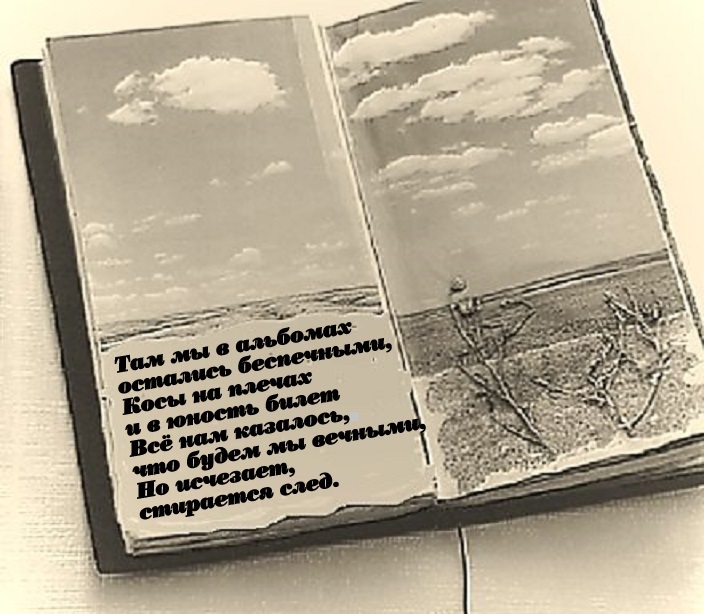 Там мы в альбомах
остались беспечными,
Косы на плечах
и в юность билет
Всё нам казалось,
что будем мы вечными,
Но исчезает,
стирается след.